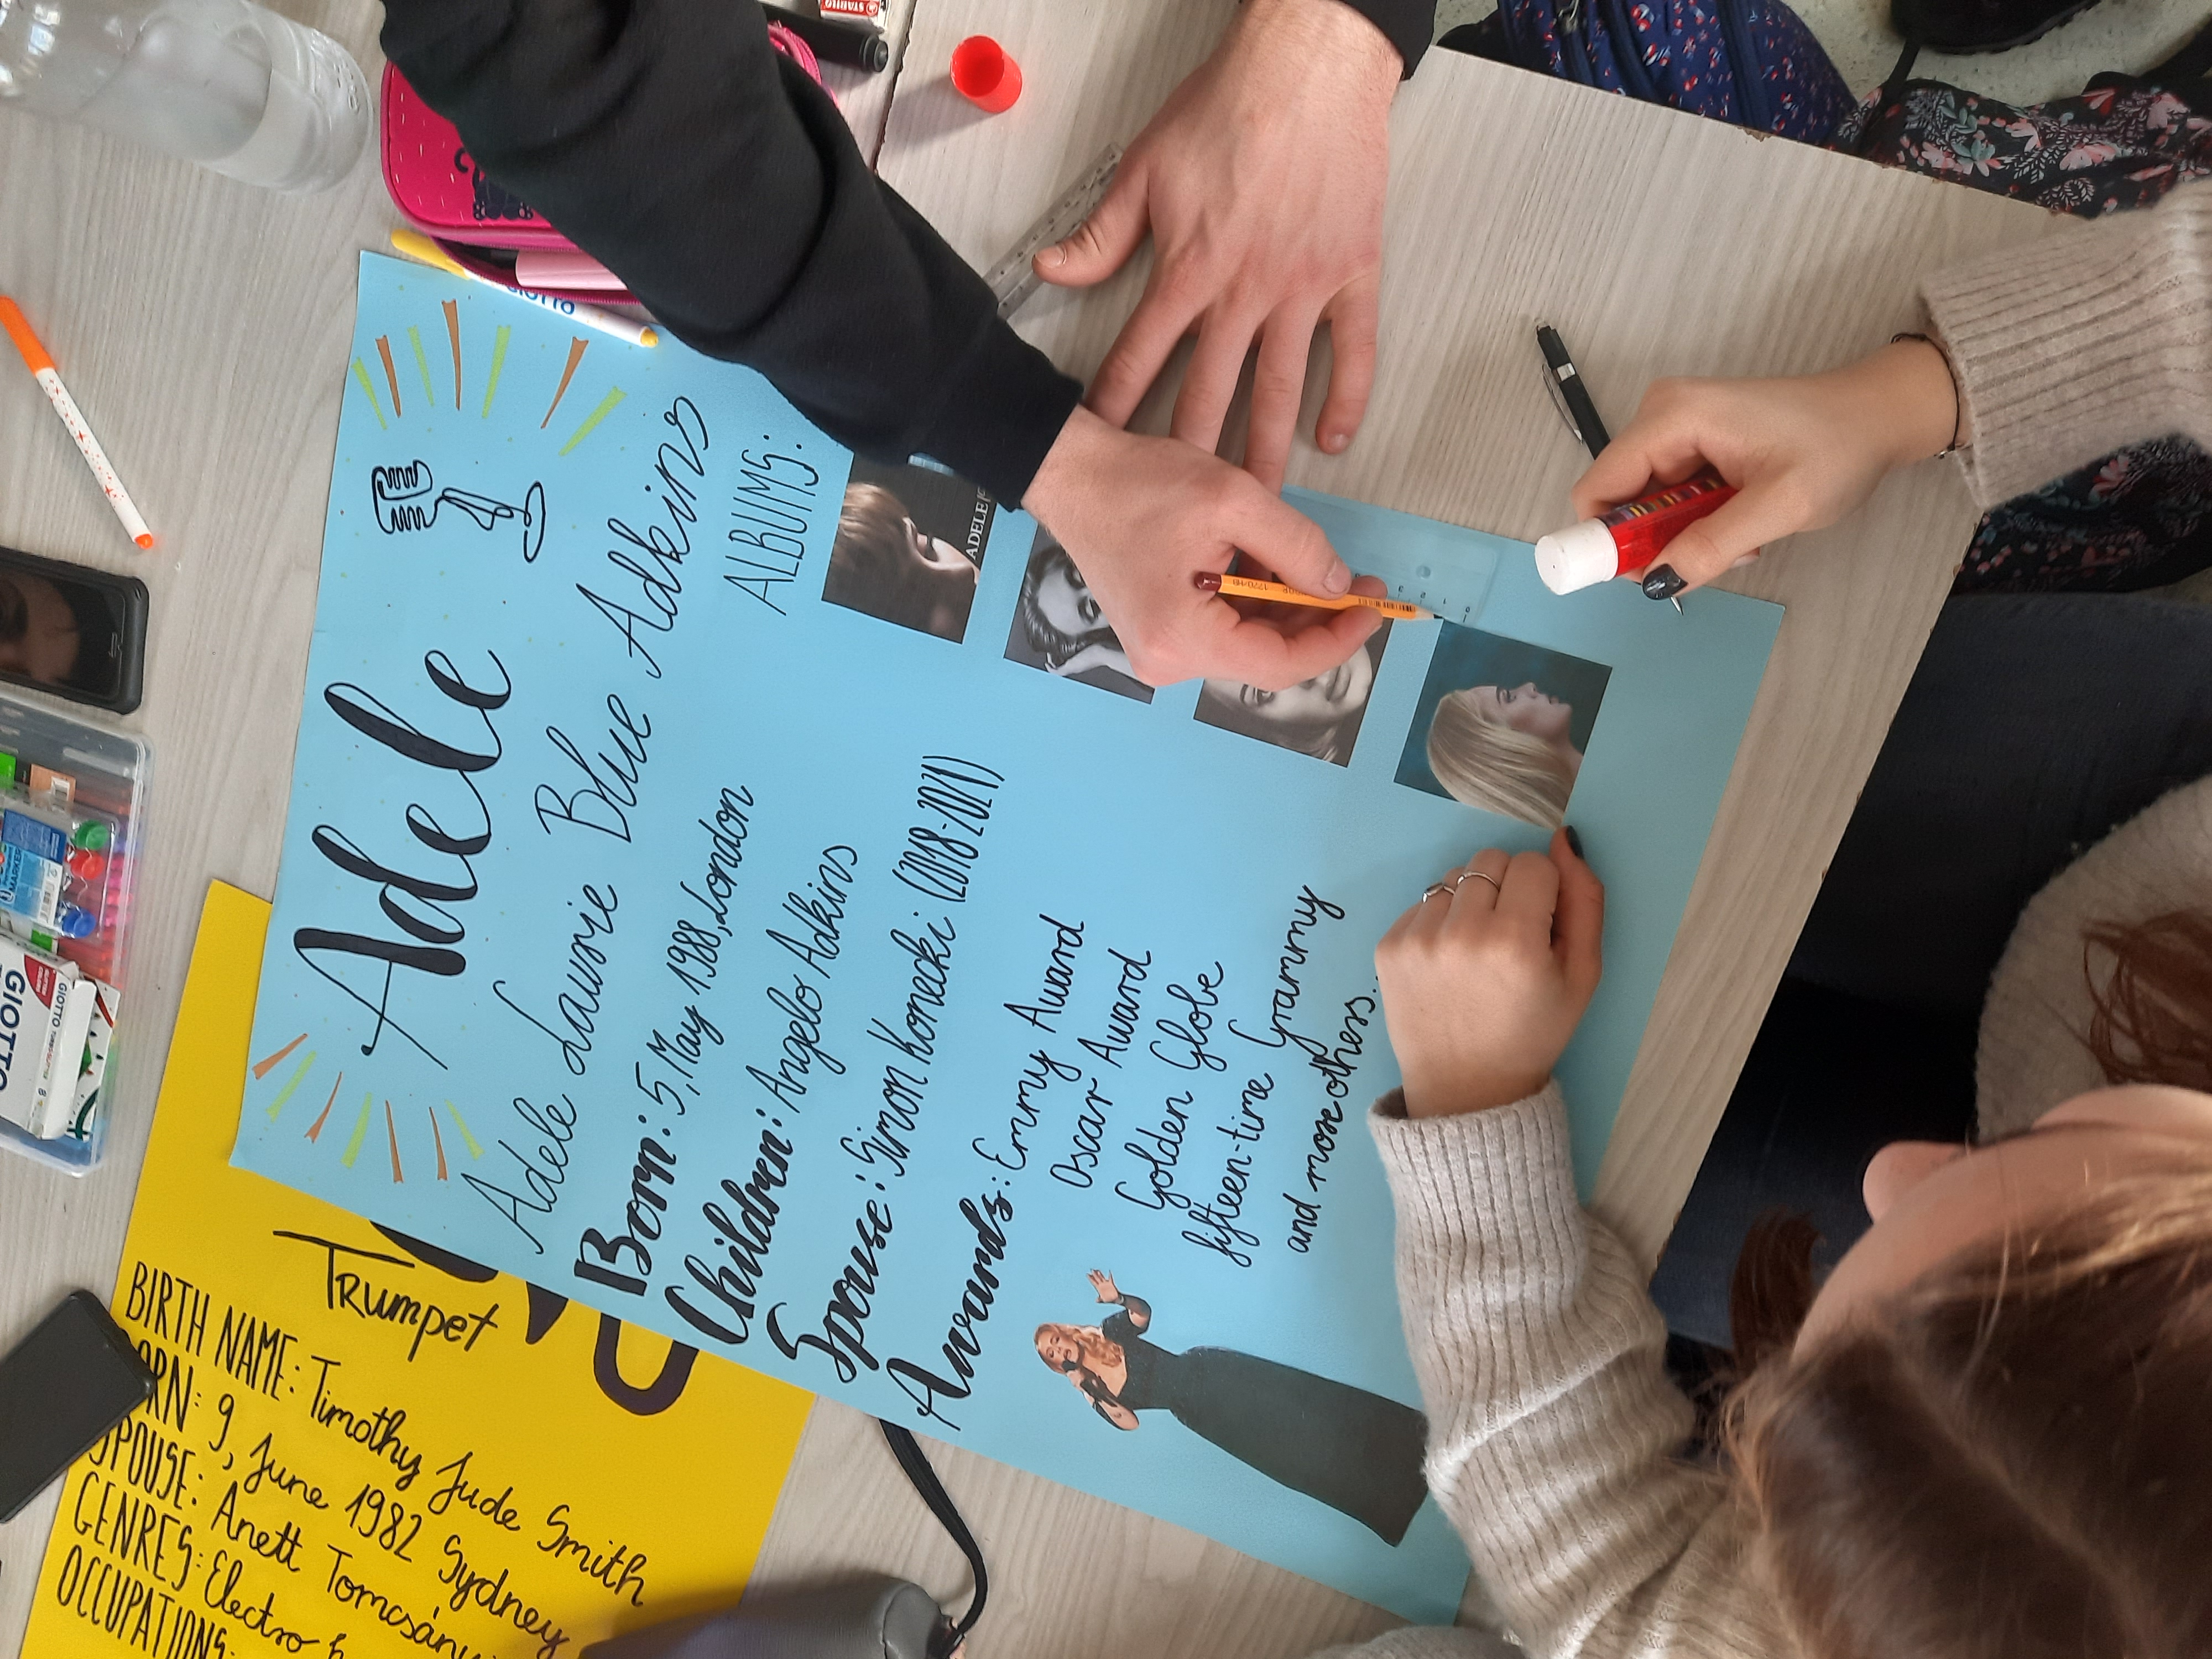 Adele
Adele Laurie Blue Adkins
Born: 5, May 1988, London
Children: Angelo Adkins
Spouse: Simon Konecki (2018-2021)
Awards: Emmy Award
Oscar Award
Golden Globe
fifteen-time Grammy
and more others...
ALBUMS:
ADELE
TRumpet
BIRTH NAME: Timothy Jude Smith
ORN: 9, June 1982 Sydney
SPOUSE: Anett Tomcsányi
GENRES: Electro
OCCUPATIONS:
GIOTTO
GIOTTO
GIOTTO
MARKER
STABILO